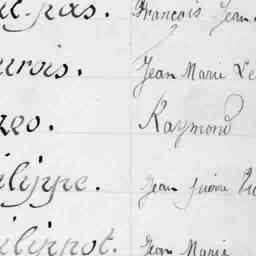 pas. François Jean
urois. Jean Marie Le
zeo. Raymond
elippe. Jean Pierre
ilippot. Jean Marie